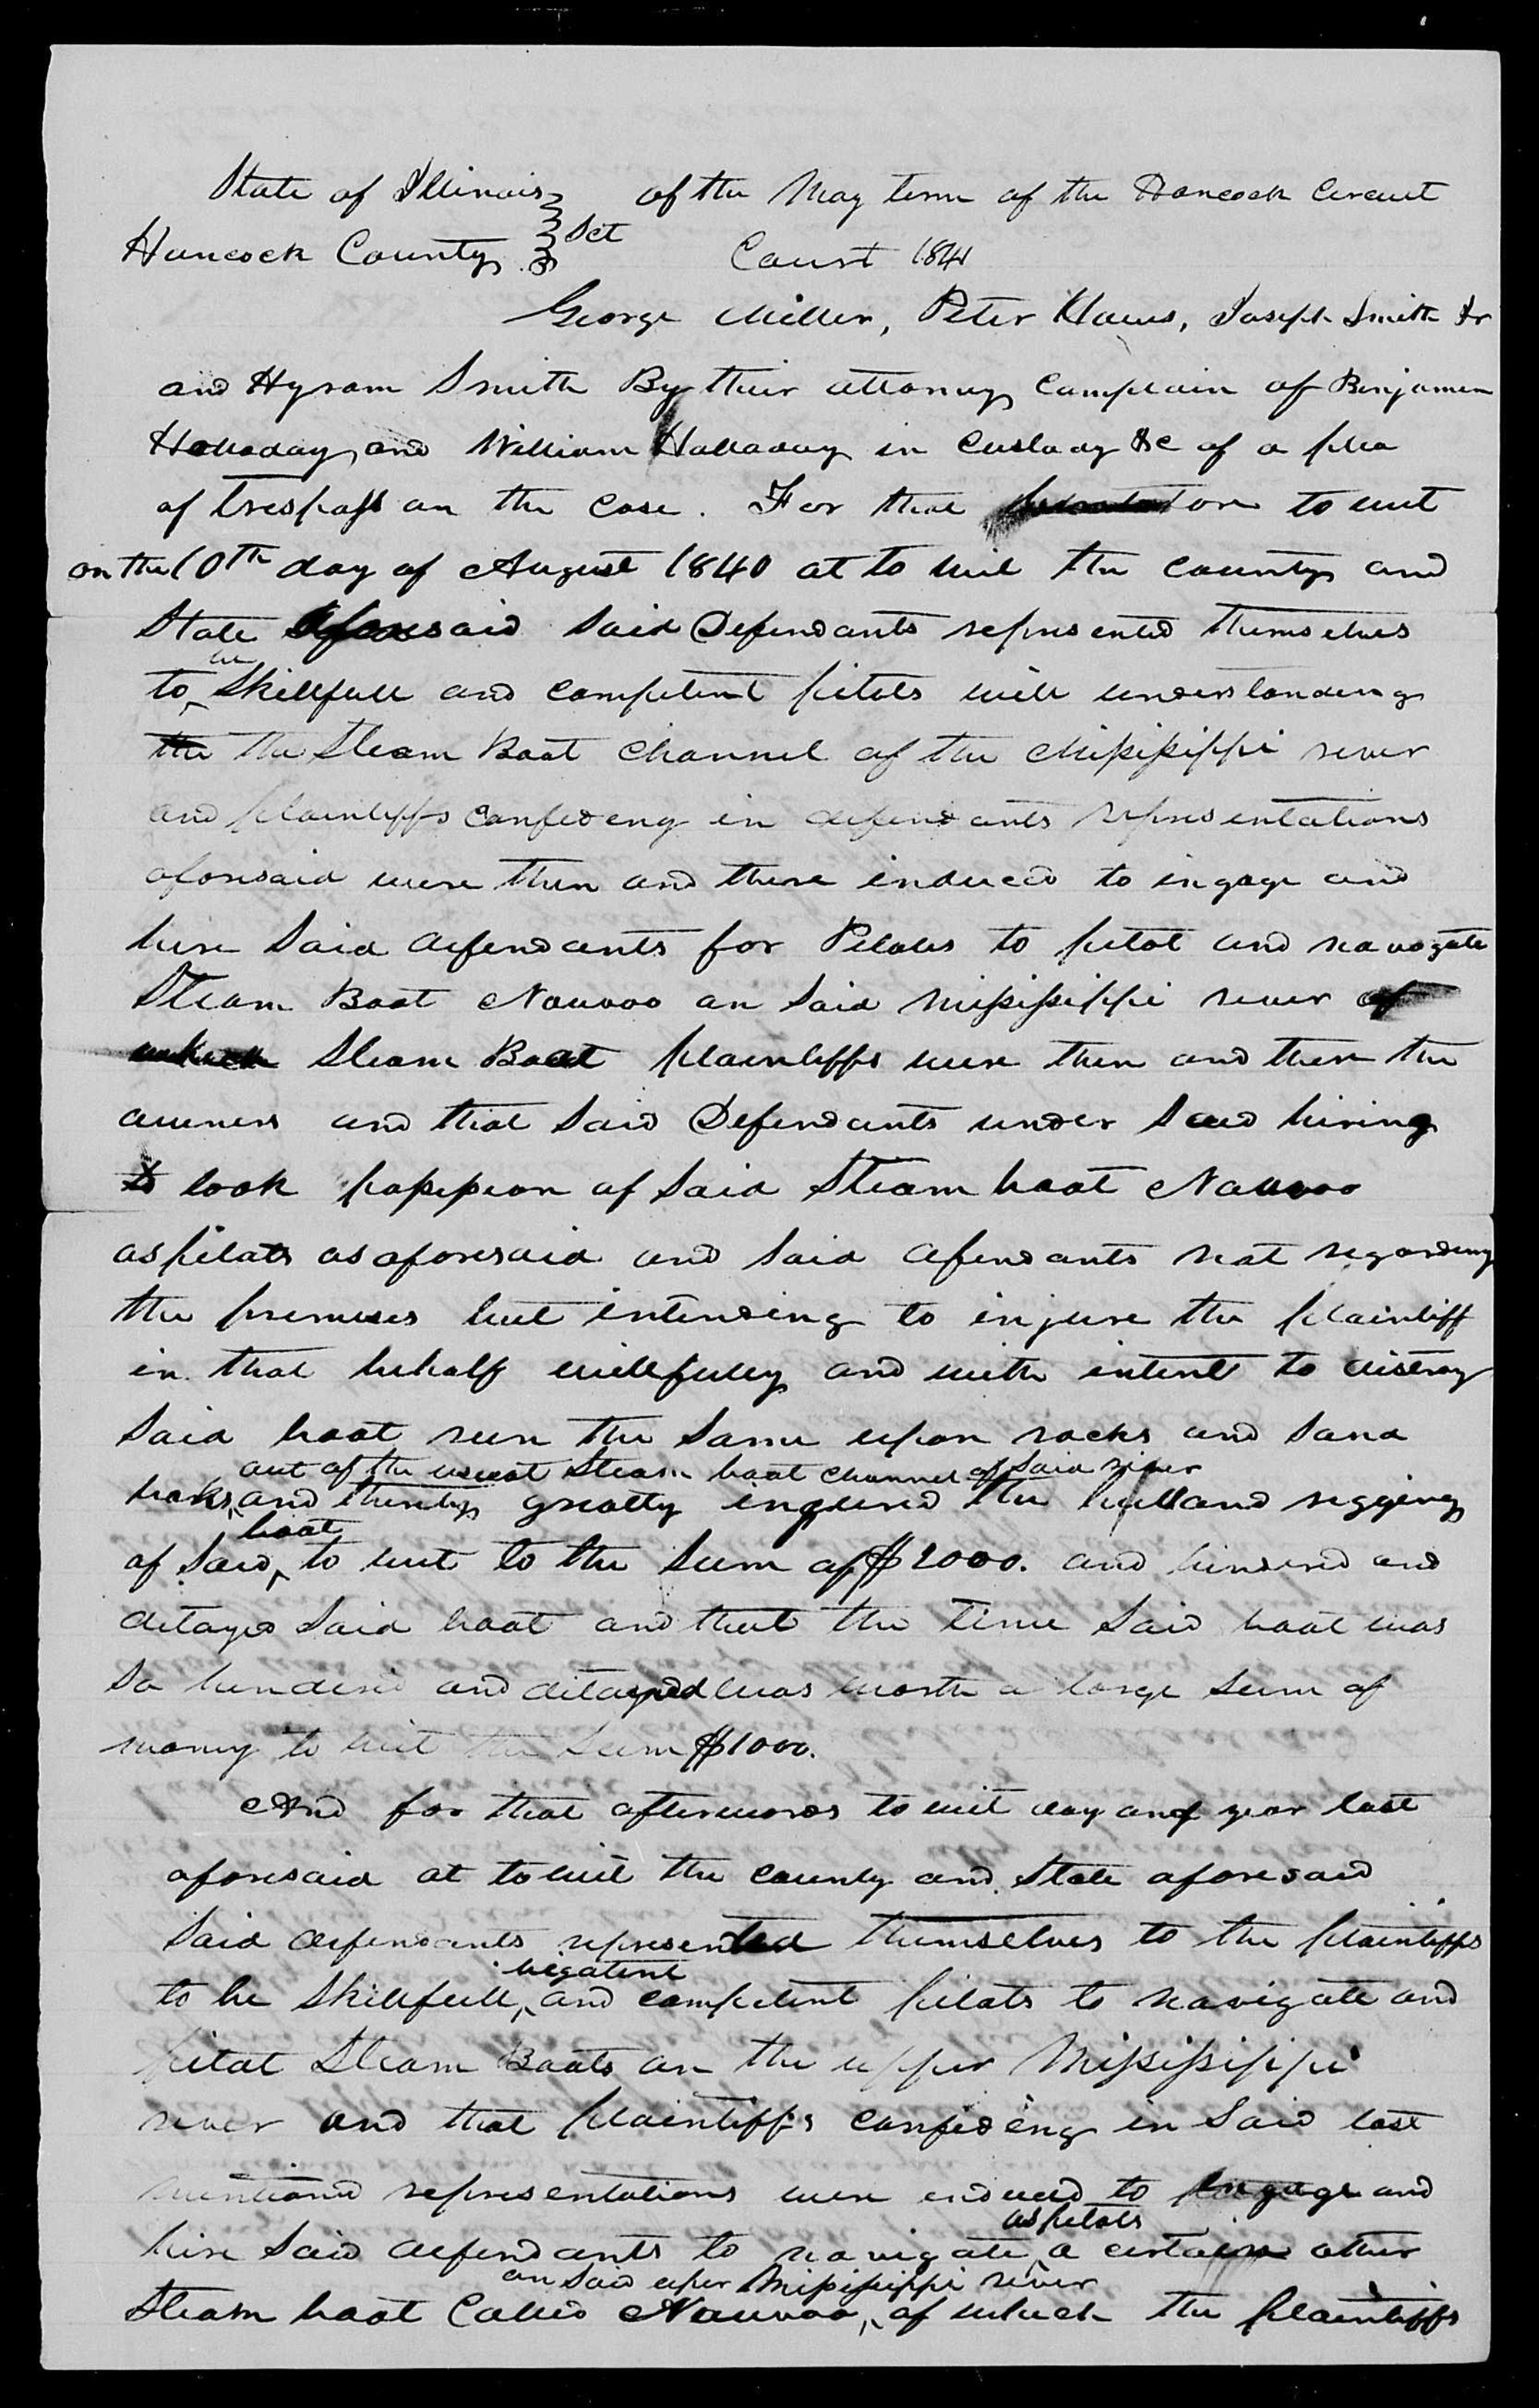 State of Illinois } of the May term of the Hancock Circuit
Hancock County } Sct Court 1841
George Miller, Peter Haws, Joseph Smith Jr
and Hyram Smith By their attorney Complain of Benjamin
Holladay, and William Holladay in Custody &c of a plea
of trespass on the Case. For that to wit
on the 10th day of August 1840 at to wit the County and
State aforesaid Said Defendants represented themselves
to be Skillfull and Competent pilots well understanding
the the Steam Boat Channel of the Missisippi river
and plaintiffs Confideng in defendants representations
aforesaid were then and there induced to ingage and
hire Said defendants for Pilotes to pilot and navagate
Steam Boat Nauvoo on Said Missisippi river of
which Steam Boat plaintiffs were then and there the
owners and that Said Defendants under Said hiring
to took possession of Said Steam boat Nauvoo
as pilots as aforesaid and Said defendants not regarding
the premises but intending to injure the plaintiff
in that behalf willfully and with intent to distroy
Said boat run the Same upon rocks and Sand
out of the usual Steam boat Channel of Said river
bars, and thereby greatly injured the hull and rigging
boat
of Said to wit to the Sum of $2000. and hindered and
detayed Said boat and that the time Said boat was
So hindered and detayed was worth a large Sum of
money to wit the Sum $1000.
And for that afterwards to wit day and year last
aforesaid at to wit the County and State aforesaid
Said defendants represented themselves to the plaintiffs
to be Skillfull, and competent pilots to navigate and
pilot Steam Boats on the upper Missisippi
river and that plaintiffs confideng in Said last
mentioned representations were enduced to engage and
as pilots
hire Said defendants to navigate a certain other
on Said uper Missisippi river
Steam boat Called Nauvoo, of which the plaintiffs